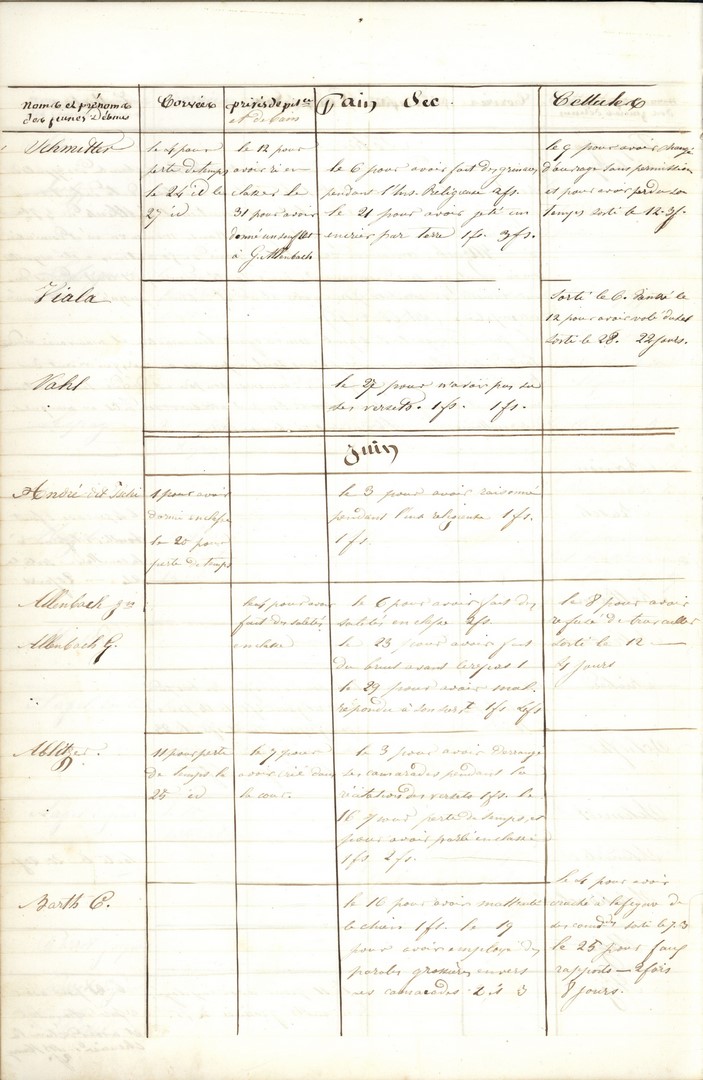 Noms et prénoms
des jeunes détenus
Corvées
privés de pitce
et de bain
Pain Sec.
Cellules
Schmitter
le 4 pour
perte de temps
le 24 id le
27 id
le 12 pour
avoir ri en
classe le
31 pour avoir
donné un soufflet
à G. Allenbach
le 6 pour avoir fait des grimaces
pendant l'Ins. Religieuse 2fs.
le 21 pour avoir jeté un
encrier par terre 1fs. 3fs.
le 9 pour avoir changé
d'ouvrage sans permission
et pour avoir perdu son
temps sorti le 12. 3j.
Viala
Sorti le 6. rentré le
12 pour avoir volé du
sorti le 28. 22 jours.
Vahl
le 27 pour n'avoir pas su
ses versets. 1fs. 1fs.
Juin
André dit
1 pour avoir
dormi en classe
le 20 pour
perte de temps
le 3 pour avoir raisonné
pendant l'ins religieuse 1fs.
1fs.
Allenbach
Allenbach G.
le 4 pour avoir
fait des saletés
en classe
le 6 pour avoir fait des
saletés en classe 2fs.
le 23 pour avoir fait
du bruit avant le repas 1
le 29 pour avoir mal
répondu à son 1fs 4fs
le 8 pour avoir
refusé de travailler
sorti le 12 —
4 jours
Ablitzer.
11 pour perte
de temps le
25 id
le 7 pour
avoir crié dans
la cour.
le 3 pour avoir dérangé
ses camarades pendant la
récitation des versets 1fs. le
16 pour perte de temps, et
pour avoir parlé en classe
1fs 2fs.
Barth C.
le 16 pour avoir maltraité
le chien 1fs. le 19
pour avoir employé des
paroles grossières envers
ses camarades. 2 is 3
le 4 pour avoir
craché à la figure de
ses camdes sorti le 7. 3
le 25 pour faux
rapports — 2 fois
8 jours.